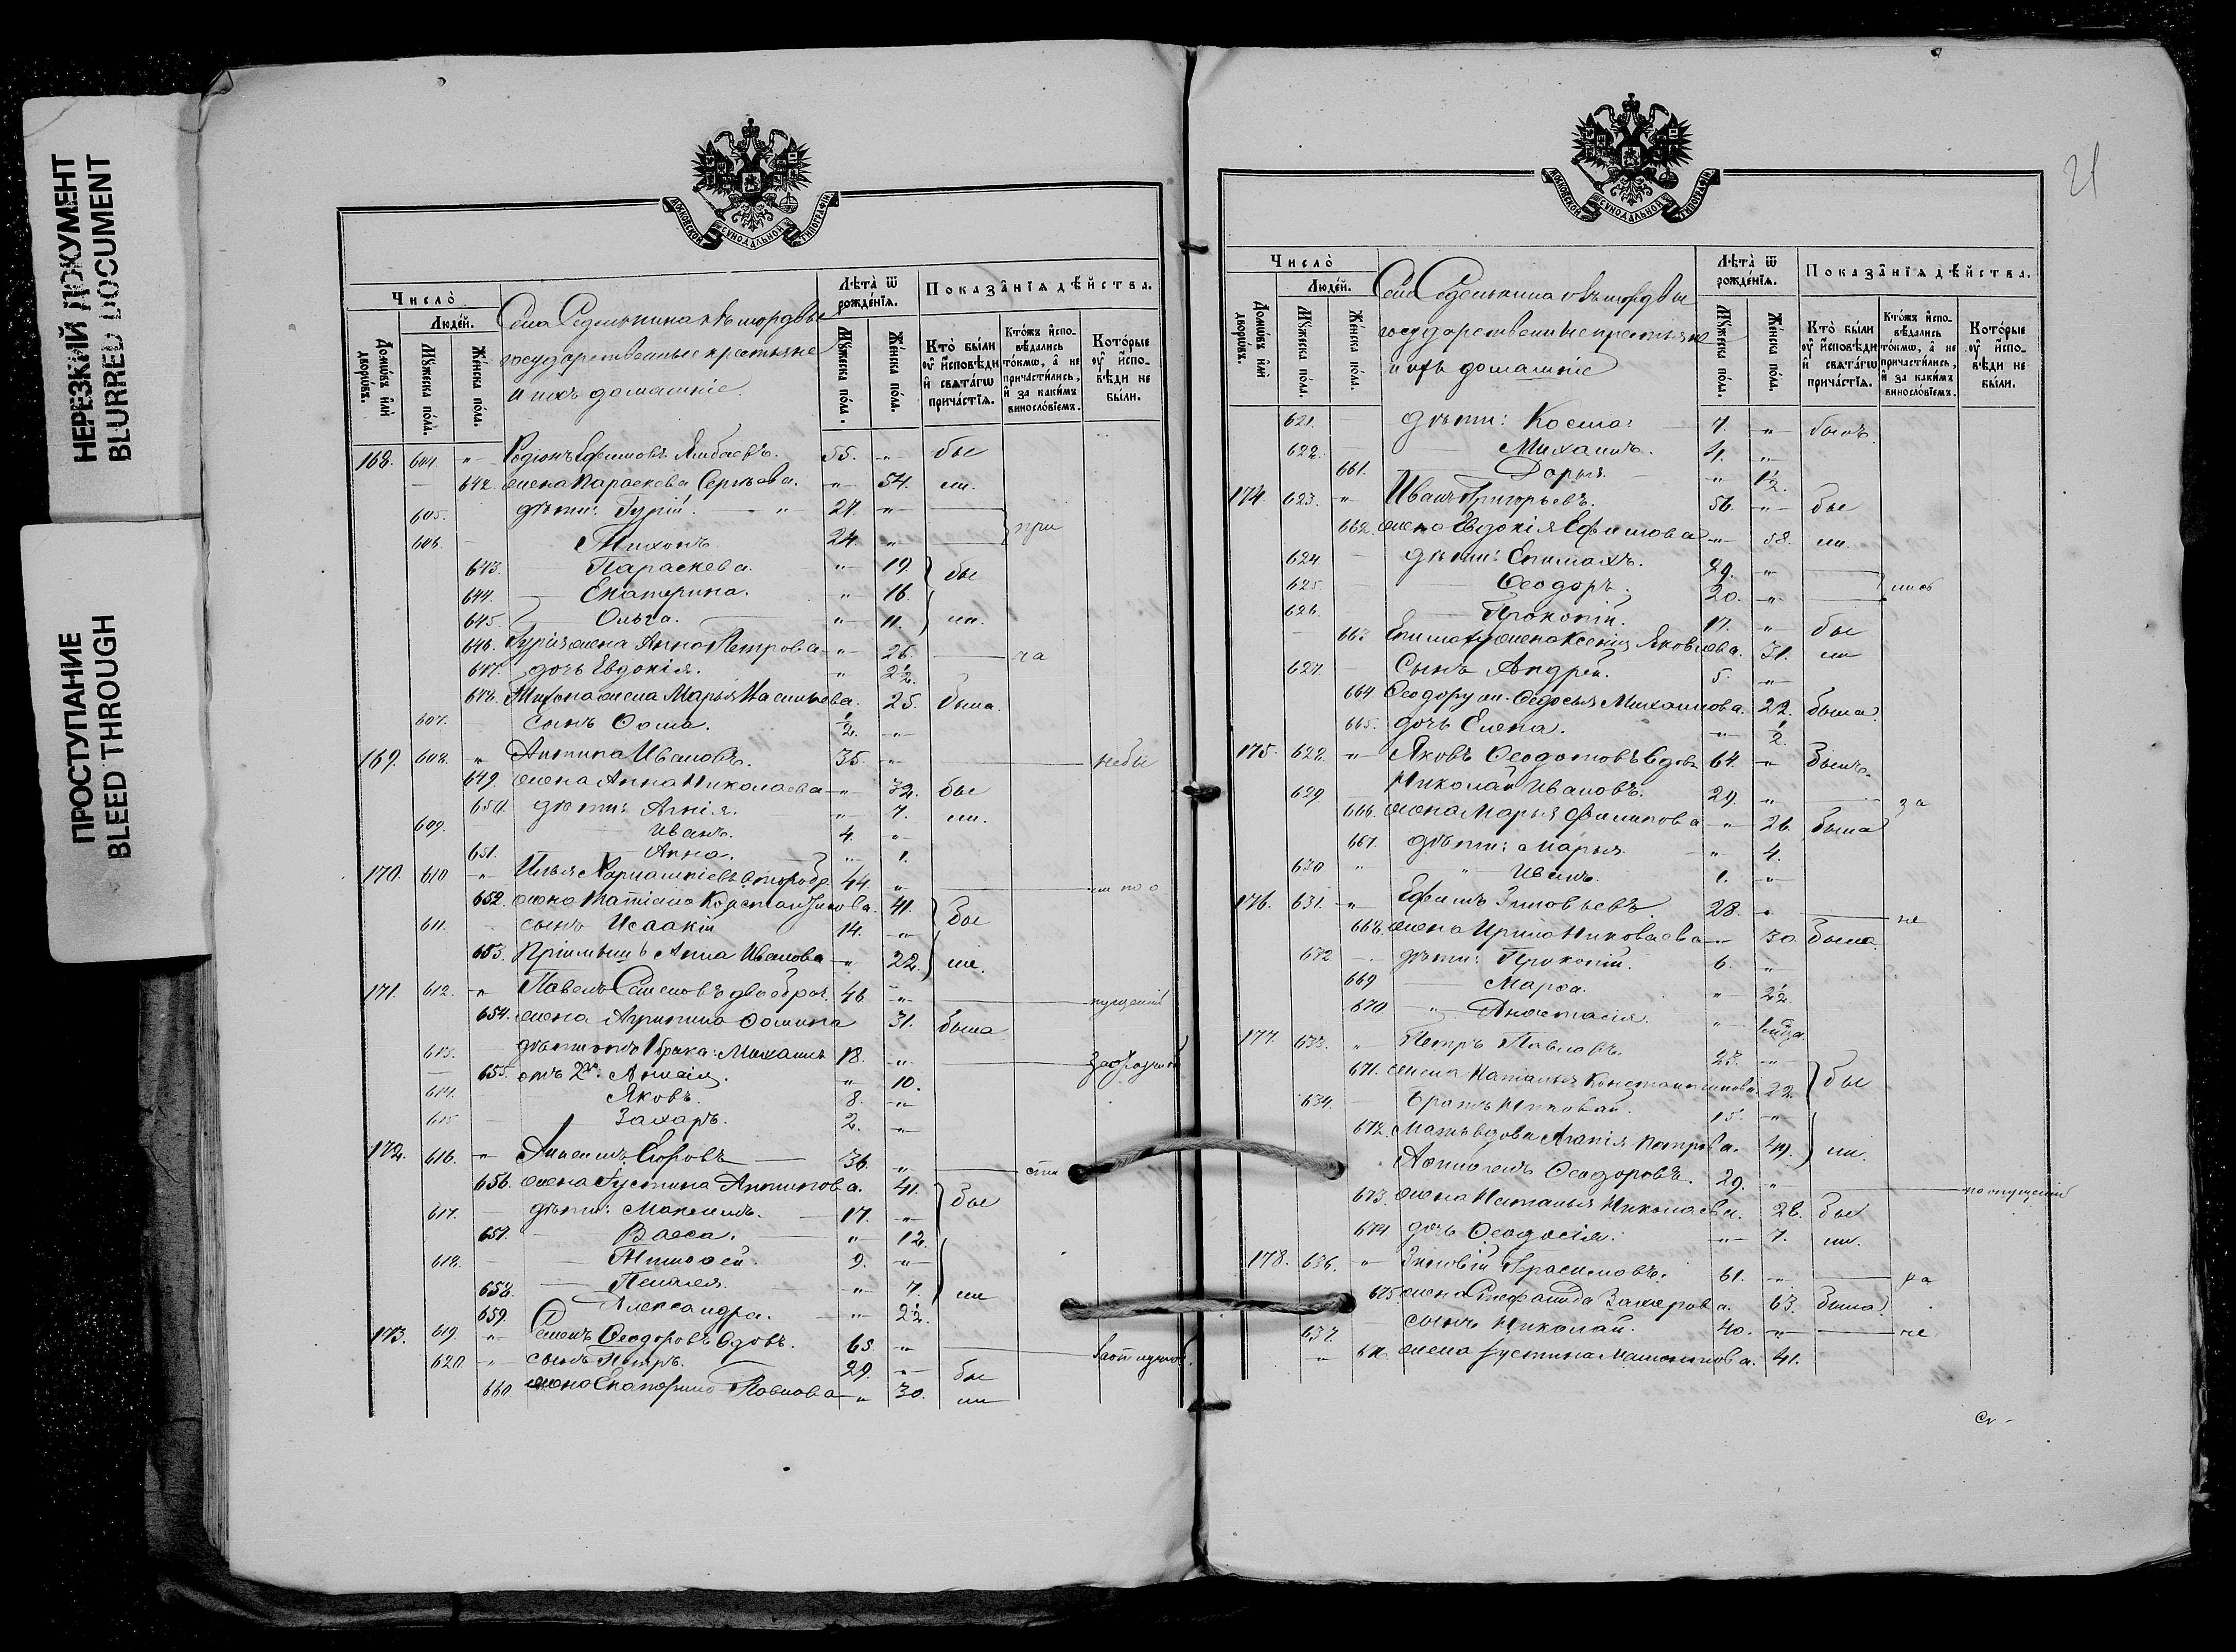 НЕРЕЗКИЙ ДОКУМЕНТ
BLURRED DOCUMENT
ПРОСТУПАНИЕ
BLEED THROUGH
МОСКОВСКОЙ СѴНОДАЛЬНОЙ ТИПОГРАФІИ
Число̀
Люде́й.
Домѡ́въ и҆лѝ дворѡ́въ.
Мꙋ́жеска по́ла.
Же́нска по́ла.
Села Седелькина въ мордвы
государственные крестьяне
и ихъ домашніе.
Лѣ́та ѿ рожде́нїѧ.
Мꙋ́жеска по́ла.
Же́нска по́ла.
Показа̂нїѧ дѣ́йства.
Кто̀ бы́ли ᲂу҆ и҆сповѣ́ди и҆ свѧта́гѡ прича́стїѧ.
Кто́жъ и҆спо-вѣ́дались то́кмѡ, а҆ не причасти́лись, и҆ за каки́мъ винослові́емъ.
Кото́рые ᲂу҆ и҆спо-вѣ́ди не бы́ли.
168. 604. " Родіонъ Ефимовъ 55. " бы
642. жена Параскева Сергѣева. " 54. ли.
605. дѣти: Гурій. 27. "
606. Тихонъ 24. " при
643. Параскева. " 19. бы
644. Екатерина. " 16.
645. Ольга. " 11. ли.
646. Гурія жена Анна Петрова " 26. ча
647. дочь Евдокія. " 2½.
648. Тихона жена Марья Васильева. 25. была.
607. сынъ Ѳома. ½. "
169. 608. " Антипа Ивановъ. 35. " небы
649. жена Анна Николаева " 32. бы
650. дѣти: Агнія. " 7. ли.
609. Иванъ. 4. "
651. Анна. " 1.
170. 610 " Илья второбр. 44. " ли по о
652. жена Константинова. 41. бы
611. сынъ Исаакій 14. "
653. Анна Иванова " 22. ли.
171. 612. " Павелъ Семеновъ двоебрач. 46 " пущенію
654. жена Агрипина Ѳомина 31. была
613. дѣти отъ 1 брака: Михаилъ 18. "
655. отъ 2го: " 10.
614. Яковъ. 8. "
615 Захаръ. 2. "
172. 616. " 36. " сти
656. жена Іустина Антипова. 41. бы
617. дѣти: Максимъ. 17. "
657. Васса. " 12.
618. Тимоѳей. 9. "
658. Пелагея. " 7. ли
659. Александра. " 2½.
173. 619. " Семенъ Ѳеодоровъ вдовъ. 65. "
620 " сынъ Петръ. 29. " бы
660 жена Екатерина Павлова " 30. ли
21
МОСКОВСКОЙ СѴНОДАЛЬНОЙ ТИПОГРАФІИ
Число̀
Люде́й.
Домѡ́въ и҆лѝ дворѡ́въ.
Мꙋ́жеска по́ла.
Же́нска по́ла.
Села Седелькина въ мордвы
государственные крестьяне
и ихъ домашніе
Лѣ́та ѿ рожде́нїѧ.
Мꙋ́жеска по́ла.
Же́нска по́ла.
Показа̂нїѧ дѣ́йства.
Кто̀ бы́ли ᲂу҆ и҆сповѣ́ди и҆ свѧта́гѡ прича́стїѧ.
Кто́жъ и҆спо-вѣ́дались то́кмѡ, а҆ не причасти́лись, и҆ за каки́мъ винослові́емъ.
Кото́рые ᲂу҆ и҆спо-вѣ́ди не бы́ли.
621. дѣти: Косма. 7. " былъ.
622. Михаилъ. 4. "
661. Дарья. " 1½.
174 623. " Иванъ Григорьевъ. 56. " бы
662. жена Евдокія Ефимова " 58. ли.
624 дѣти: Епимахъ. 29. "
625. Ѳеодоръ. 20. " лись
626. Прокопій. 17. " бы
663 Епимаху жена Ксенія Яковлева. 31. ли
627. Сынъ Андрей. 5. "
664. Ѳеодору ж. Ѳедосья Михаилова. 22. была.
665. дочь Елена. " ½.
175. 628. " Яковъ Ѳеодотовъ вдовъ 64. " былъ.
629 Николай Ивановъ. 29. " за
666. жена Марья Филипова " 26. была
667. дѣти: Марья " 4.
630 " " Иванъ. 1. "
176. 631. " Ефимъ Зиновьевъ. 28. " не
668. жена Ирина Николаева " 30. была.
632 дѣти: Прокопій. 6. "
669 Марѳа. " 2½.
670 " Анастасія. "
177. 633. " Петръ Павловъ. 23. "
671. жена Наталья Константинова. 22. бы
634. братъ Николай. 15. "
672. Мать вдова Агапія Петрова. 49. ли.
Ѳеодоровъ. 29. " по опущенію
673. жена Наталья Николаева. 28. бы
674 дочь Ѳеодосія. " 7. ли.
178. 636. " Зиновій Герасимовъ. 61. " ра
675. жена Стефанида Захарова. 63. была.
637. сынъ Николай. 40. " че
" 676. жена Іустина 41.